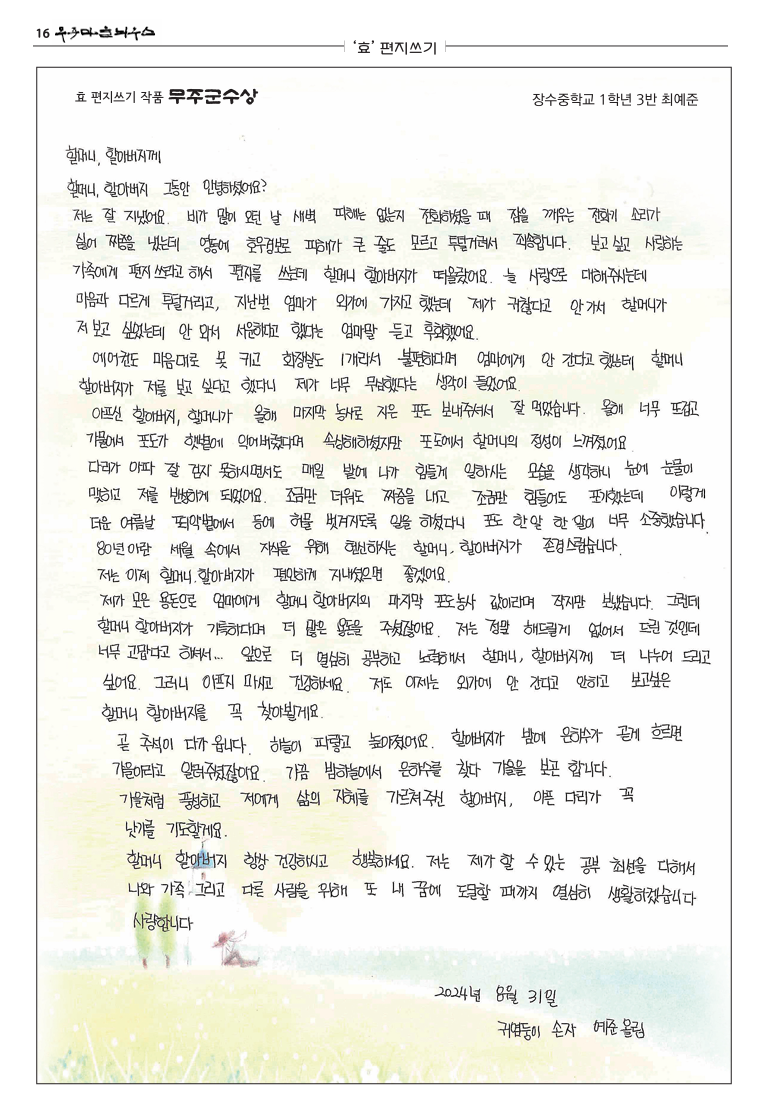 16 무주마을뉴우스
'효' 편지쓰기
효 편지쓰기 작품 무주군수상
장수중학교 1학년 3반 최예준
할머니, 할아버지께
할머니, 할아버지 그동안 안녕하셨어요?
저는 잘 지냈어요. 비가 많이 오던 날 새벽 피해는 없는지 전화하셨을 때 잠을 깨우는 전화기 소리가
싫어 짜증을 냈는데 영동에 호우경보로 피해가 큰 줄도 모르고 투덜거려서 죄송합니다. 보고 싶고 사랑하는
가족에게 편지 쓰라고 해서 편지를 쓰는데 할머니 할아버지가 떠올랐어요. 늘 사랑으로 대해주시는데
마음과 다르게 투덜거리고, 지난번 엄마가 외가에 가자고 했는데 제가 귀찮다고 안 가서 할머니가
저 보고 싶었는데 안 와서 서운하다고 했다는 엄마말 듣고 후회했어요.
에어컨도 마음대로 못 키고 화장실도 1개라서 불편하다며 엄마에게 안 간다고 했는데 할머니
할아버지가 저를 보고 싶다고 했다니 제가 너무 무심했다는 생각이 들었어요.
아프신 할아버지, 할머니가 올해 마지막 농사로 지은 포도 보내주셔서 잘 먹었습니다. 올해 너무 뜨겁고
가물어서 포도가 햇볕에 익어버렸다며 속상해하셨지만 포도에서 할머니의 정성이 느껴졌어요
다리가 아파 잘 걷지 못하시면서도 매일 밭에 나가 힘들게 일하시는 모습을 생각하니 눈에 눈물이
맺히고 저를 반성하게 되었어요. 조금만 더워도 짜증을 내고 조금만 힘들어도 포기했는데 이렇게
더운 여름날 뙤약볕에서 등에 허물 벗겨지도록 일을 하셨다니 포도 한알 한 알이 너무 소중했습니다.
80년이란 세월 속에서 자식을 위해 헌신하시는 할머니, 할아버지가 존경스럽습니다.
저는 이제 할머니, 할아버지가 편안하게 지내셨으면 좋겠어요.
제가 모은 용돈으로 엄마에게 할머니 할아버지의 마지막 포도농사 값이라며 작지만 보냈습니다. 그런데
할머니 할아버지가 기특하다며 더 많은 용돈을 주셨잖아요. 저는 정말 해드릴게 없어서 드린 것인데
너무 고맙다고 하셔서... 앞으로 더 열심히 공부하고 노력해서 할머니, 할아버지께 더 나누어 드리고
싶어요. 그러니 아프지 마시고 건강하세요. 저도 이제는 외가에 안 간다고 안하고 보고싶은
할머니 할아버지를 꼭 찾아뵐게요.
곧 추석이 다가 옵니다. 하늘이 파랗고 높아졌어요. 할아버지가 밤에 은하수가 곱게 흐르면
가을이라고 알려주셨잖아요. 가끔 밤하늘에서 은하수를 찾다 가을을 보곤 합니다.
가을처럼 풍성하고 저에게 삶의 지혜를 가르쳐주신 할아버지, 아픈 다리가 꼭
낫기를 기도할게요.
할머니 할아버지 항상 건강하시고 행복하세요. 저는 제가 할 수 있는 공부 최선을 다해서
나와 가족 그리고 다른 사람을 위해 또 내 꿈에 도달할 때까지 열심히 생활하겠습니다
사랑합니다
2024년 8월 31일
귀염둥이 손자 예준 올림